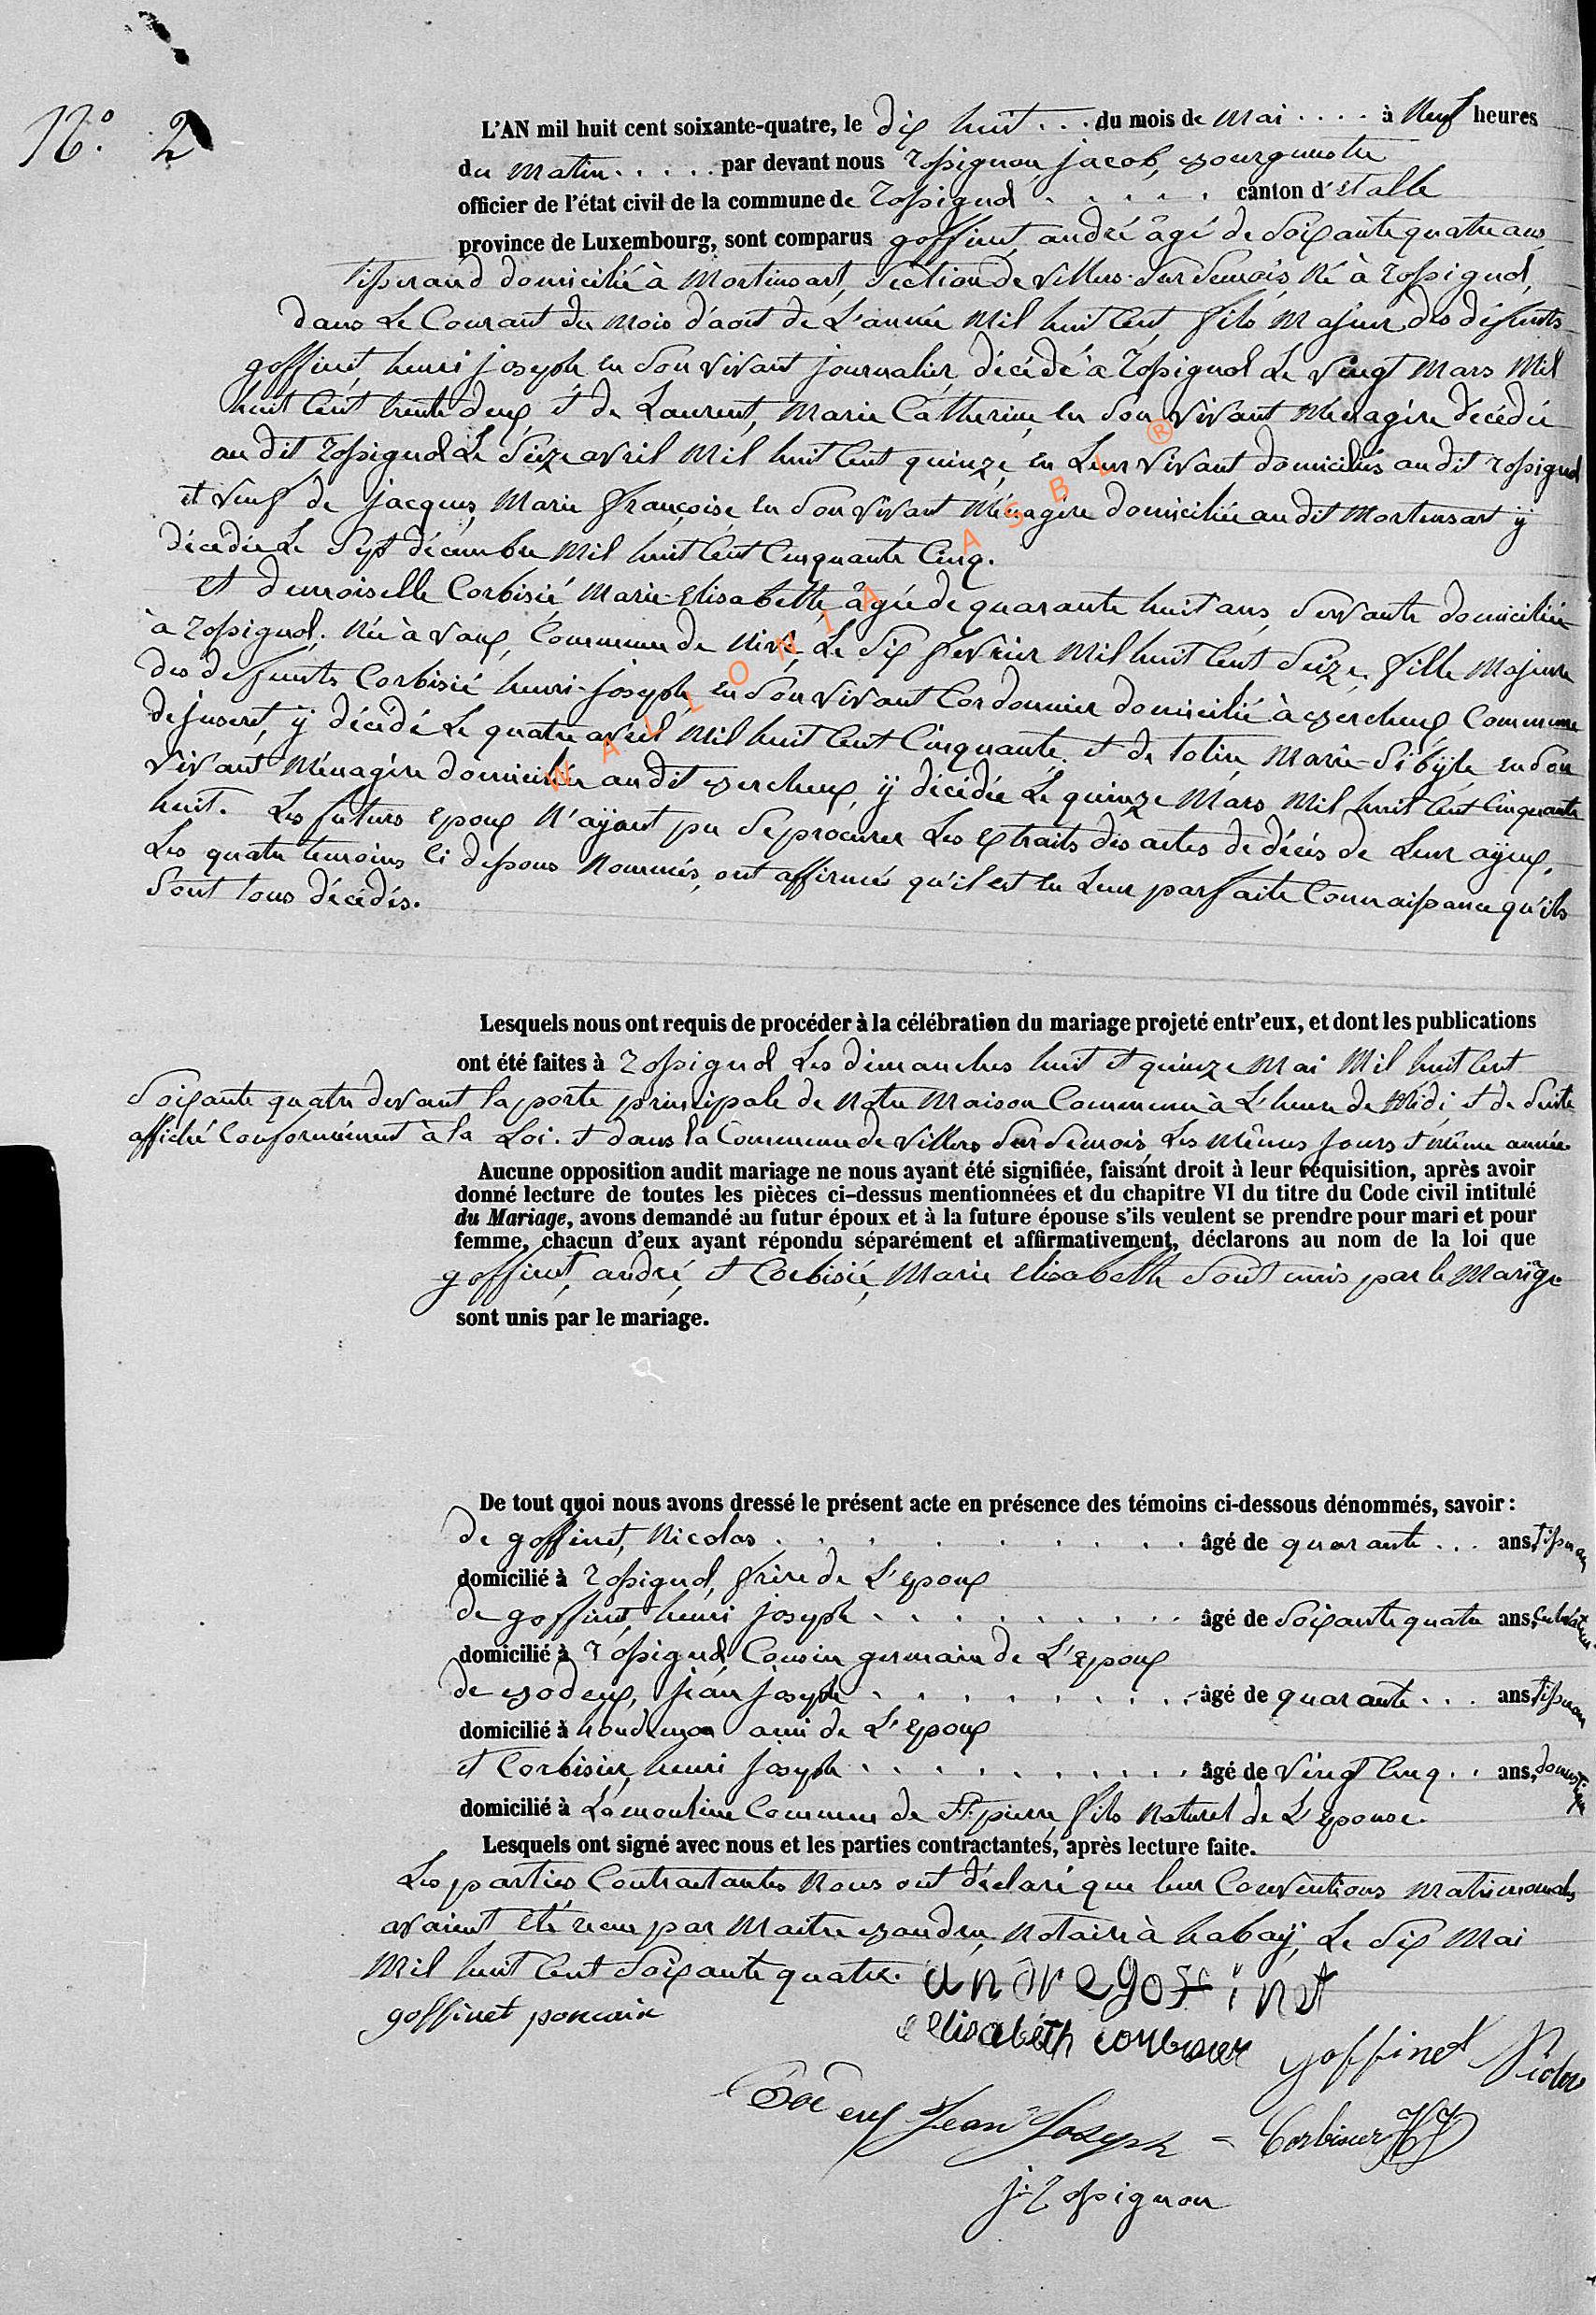 N.° 2
L'AN mil huit cent soixante-quatre, le dix huit . . . du mois de Mai . . . . à Neuf heures
du Matin . . . . . par devant nous Rossignon, jacob, Bourgmestre
officier de l'état civil de la commune de Rossignol . . . . . canton d'Etalle
province de Luxembourg, sont comparus goffinet, andré âgé de Soixante quatre ans,
Tisserand domicilié à Mortinsart, Section de Villers-Sur-Semois, Né à Rossignol,
dans Le Courant du Mois d'aout de L'année Mil huit Cent, fils Majeur des défunts
goffinet, henri joseph en Son vivant journalier, décédé à Rossignol Le Vingt Mars Mil
huit Cent trente deux, et de Laurent, Marie Catherine, en Son vivant Ménagère décédée
au dit Rossignol Le Seize avril Mil huit Cent quinze, en Leur vivant domiciliés au dit Rossignol
et Veuf de jacques, Marie françoise, en Son vivant Ménagère domiciliée au dit Mortinsart ÿ
décédée Le Sept décembre Mil huit Cent Cinquante Cinq.
Et demoiselle Corbisié Marie-Elisabeth, âgée de quarante huit ans, Servante domiciliée
à Rossignol. Née à Vaux, Commune de Nives, Le Six fevrier Mil huit Cent Seize. fille Majeure
des defunts Corbisié henri-joseph, en Son vivant Cordonnier domicilié à Bercheux Commune
de juseret, ÿ décédé Le quatre avril Mil huit Cent Cinquante. et de tolin, Marie-Sibÿle, en Son
Vivant Ménagère domiciliée au dit Bercheux, ÿ décédée Le quinze Mars Mil huit Cent Cinquante
huit. Les futurs Epoux N'aÿant pu Se procurer Les Extraits des actes de décès de Leur aÿeux,
Les quatre temoins Ci dessous Nommés, ont affirmé qu'il est en Leur parfaite Connaissance qu'ils
Sont tous décédés.
Lesquels nous ont requis de procéder à la célébration du mariage projeté entr'eux, et dont les publications
ont été faites à Rossignol Les dimanches huit et quinze Mai Mil huit Cent
Soixante quatre devant la porte principale de Notre Maison Commune à L'heure de Midi et de Suite
affiché Conformément à la Loi. et dans la Commune de Villers Sur Semois, Les Mêmes jours et même année
Aucune opposition audit mariage ne nous ayant été signifiée, faisant droit à leur réquisition, après avoir
donné lecture de toutes les pièces ci-dessus mentionnées et du chapitre VI du titre du Code civil intitulé
du Mariage, avons demandé au futur époux et à la future épouse s'ils veulent se prendre pour mari et pour
femme, chacun d'eux ayant répondu séparément et affirmativement, déclarons au nom de la loi que
goffinet, andré, et Corbisié, Marie Elisabeth Sont unis par le Mariage
sont unis par le mariage.
De tout quoi nous avons dressé le présent acte en présence des témoins ci-dessous dénommés, savoir :
de goffinet, Nicolas . . . . . . . . . âgé de quarante . . . ans, Tisseran
domicilié à Rossignol, frère de L'epoux
de goffinet, henri joseph . . . . . . . . âgé de Soixante quatre ans, Cultivateur
domicilié à Rossignol, Cousin germain de L'Epoux
de Bodeux, jean joseph . . . . . . . . âgé de quarante . . . ans, Tisseran
domicilié à houdemon ami de L'Epoux
et Corbisier, henri joseph . . . . . . . . . âgé de Vingt Cinq . . ans, domestique
domicilié à Lamouline Commune de St. pierre, fils Naturel de L'Epouse.
Lesquels ont signé avec nous et les parties contractantes, après lecture faite.
Les parties Contractantes Nous ont déclaré que leur Conventions matrimoniales
avaient été recue par Maitre Baudru, Notaire à habaÿ, Le Six Mai
Mil huit Cent Soixante quatre. andregoffinet
goffinet
elisabeth corbisier goffinet Nicolas
Bodeux Jean Joseph = Corbisier HJ
j. Rossignon
WALLONIA ASBL ®